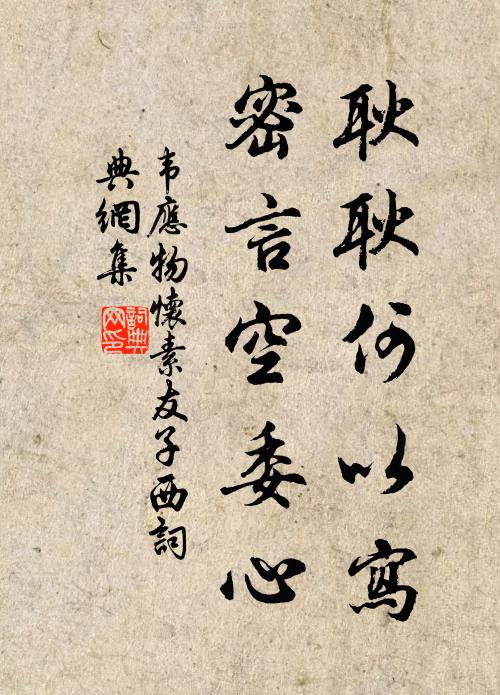 耿耿何以寫
密言空委心
韦應物懷素友子西詞
典網集
詞典
网印